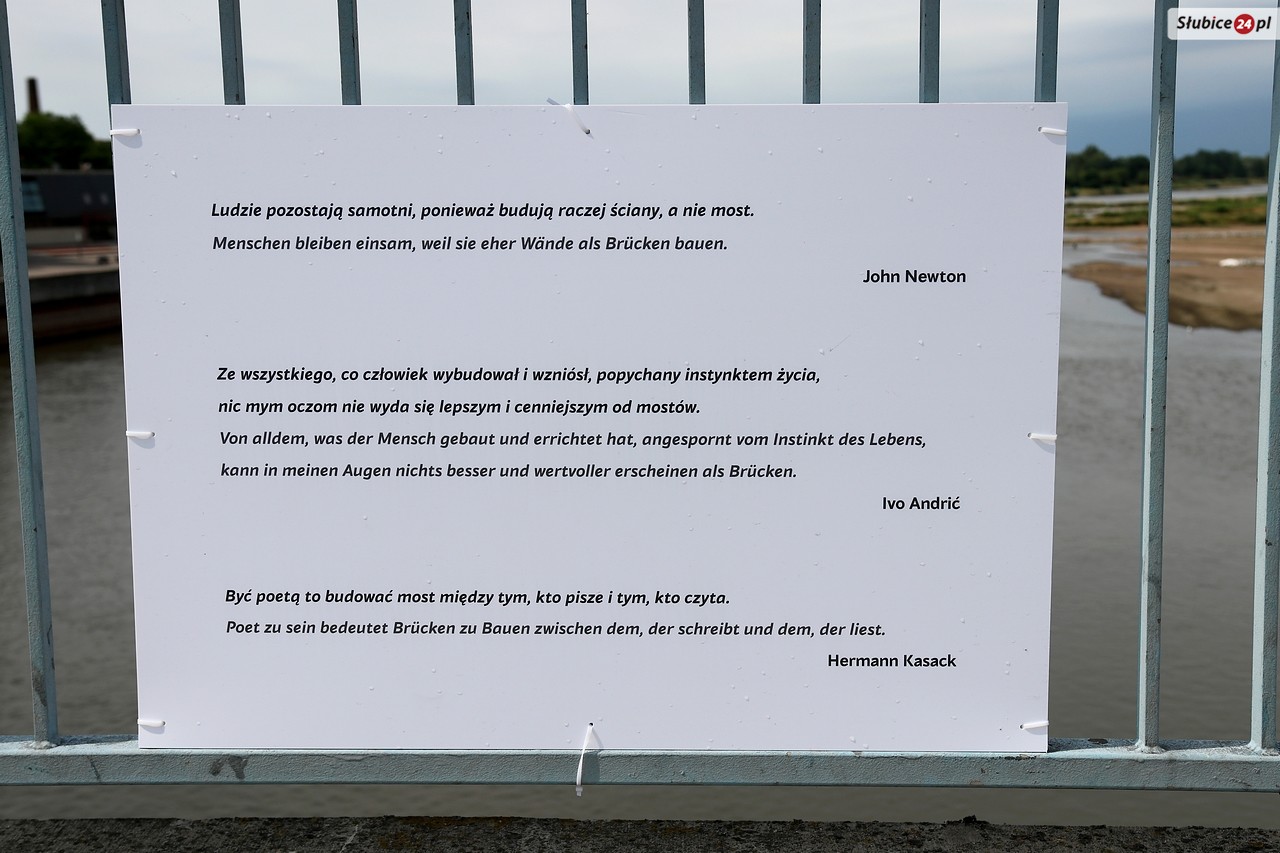 Słubice24.pl
Ludzie pozostają samotni, ponieważ budują raczej ściany, a nie most.
Menschen bleiben einsam, weil sie eher Wände als Brücken bauen.
John Newton
Ze wszystkiego, co człowiek wybudował i wzniósł, popychany instynktem życia,
nic mym oczom nie wyda się lepszym i cenniejszym od mostów.
Von alldem, was der Mensch gebaut und errichtet hat, angespornt vom Instinkt des Lebens,
kann in meinen Augen nichts besser und wertvoller erscheinen als Brücken.
Ivo Andrić
Być poetą to budować most między tym, kto pisze i tym, kto czyta.
Poet zu sein bedeutet Brücken zu Bauen zwischen dem, der schreibt und dem, der liest.
Hermann Kasack